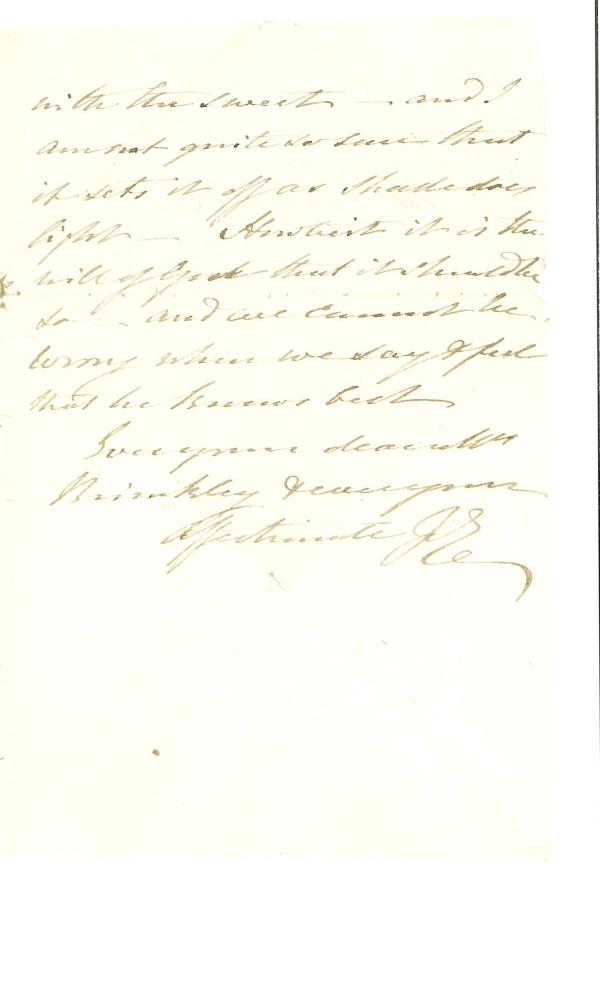 with the sweet — and I
am not quite so sure that
it sets it off as shade does
light — Howbeit it is the
will of God that it should be
so — and we cannot be
wrong when we say & feel
that he knows best
Ever yours dear Mrs
Brinkley & ever your
Affectionate